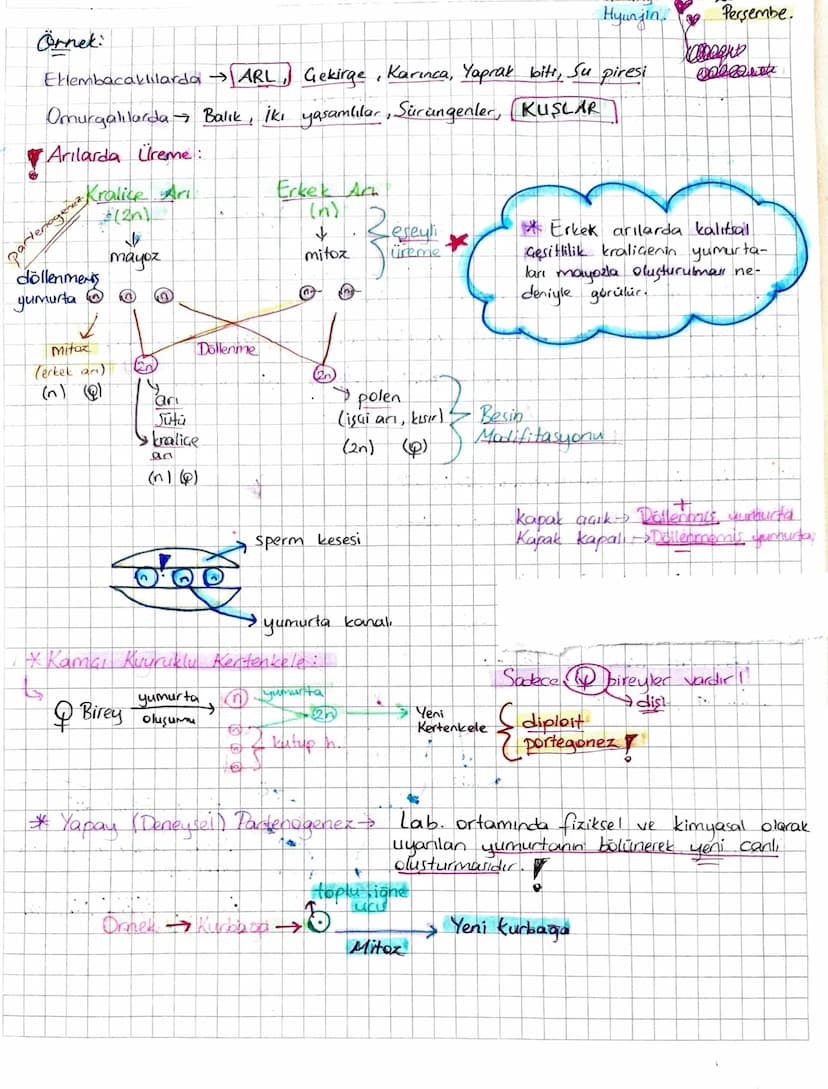 Hyunjin.
Perşembe.
Örnek:
Eklembacaklılarda → ARI, Çekirge, Karınca, Yaprak biti, Su piresi
Omurgalılarda → Balık, İki yaşamlılar, Sürüngenler, KUŞLAR
! Arılarda Üreme:
Kraliçe Arı
(2n)
Erkek Arı
(n)
partenogenez
mayoz
mitoz
eşeyli
üreme
* Erkek arılarda kalıtsal
çeşitlilik kraliçenin yumurta-
ları mayozla oluşturulması ne-
deniyle görülür.
döllenmemiş
yumurta n n n
n n
Mitoz
(erkek arı)
(n)
Döllenme
2n
2n
arı
sütü
kraliçe
arı
(n) (♀)
polen
(işçi arı, kısır)
(2n) (♀)
Besin
Modifitasyonu
kapak açık → Döllenmiş yumurta
+
Kapak kapalı → Döllenmemiş yumurta
sperm kesesi
n n n
yumurta kanalı
* Kamçı Kuyruklu Kertenkele:
Sadece ♀ bireyler vardır!
dişi
♀ Birey yumurta
oluşumu
n yumurta
2n
n
n
n
kutup h.
Yeni
Kertenkele
diploit
portegonez !
* Yapay (Deneysel) Partenogenez → Lab. ortamında fiziksel ve kimyasal olarak
uyarılan yumurtanın bölünerek yeni canlı
oluşturmasıdır. !
toplu iğne
ucu
Örnek → Kurbağa →
Mitoz
Yeni Kurbağa